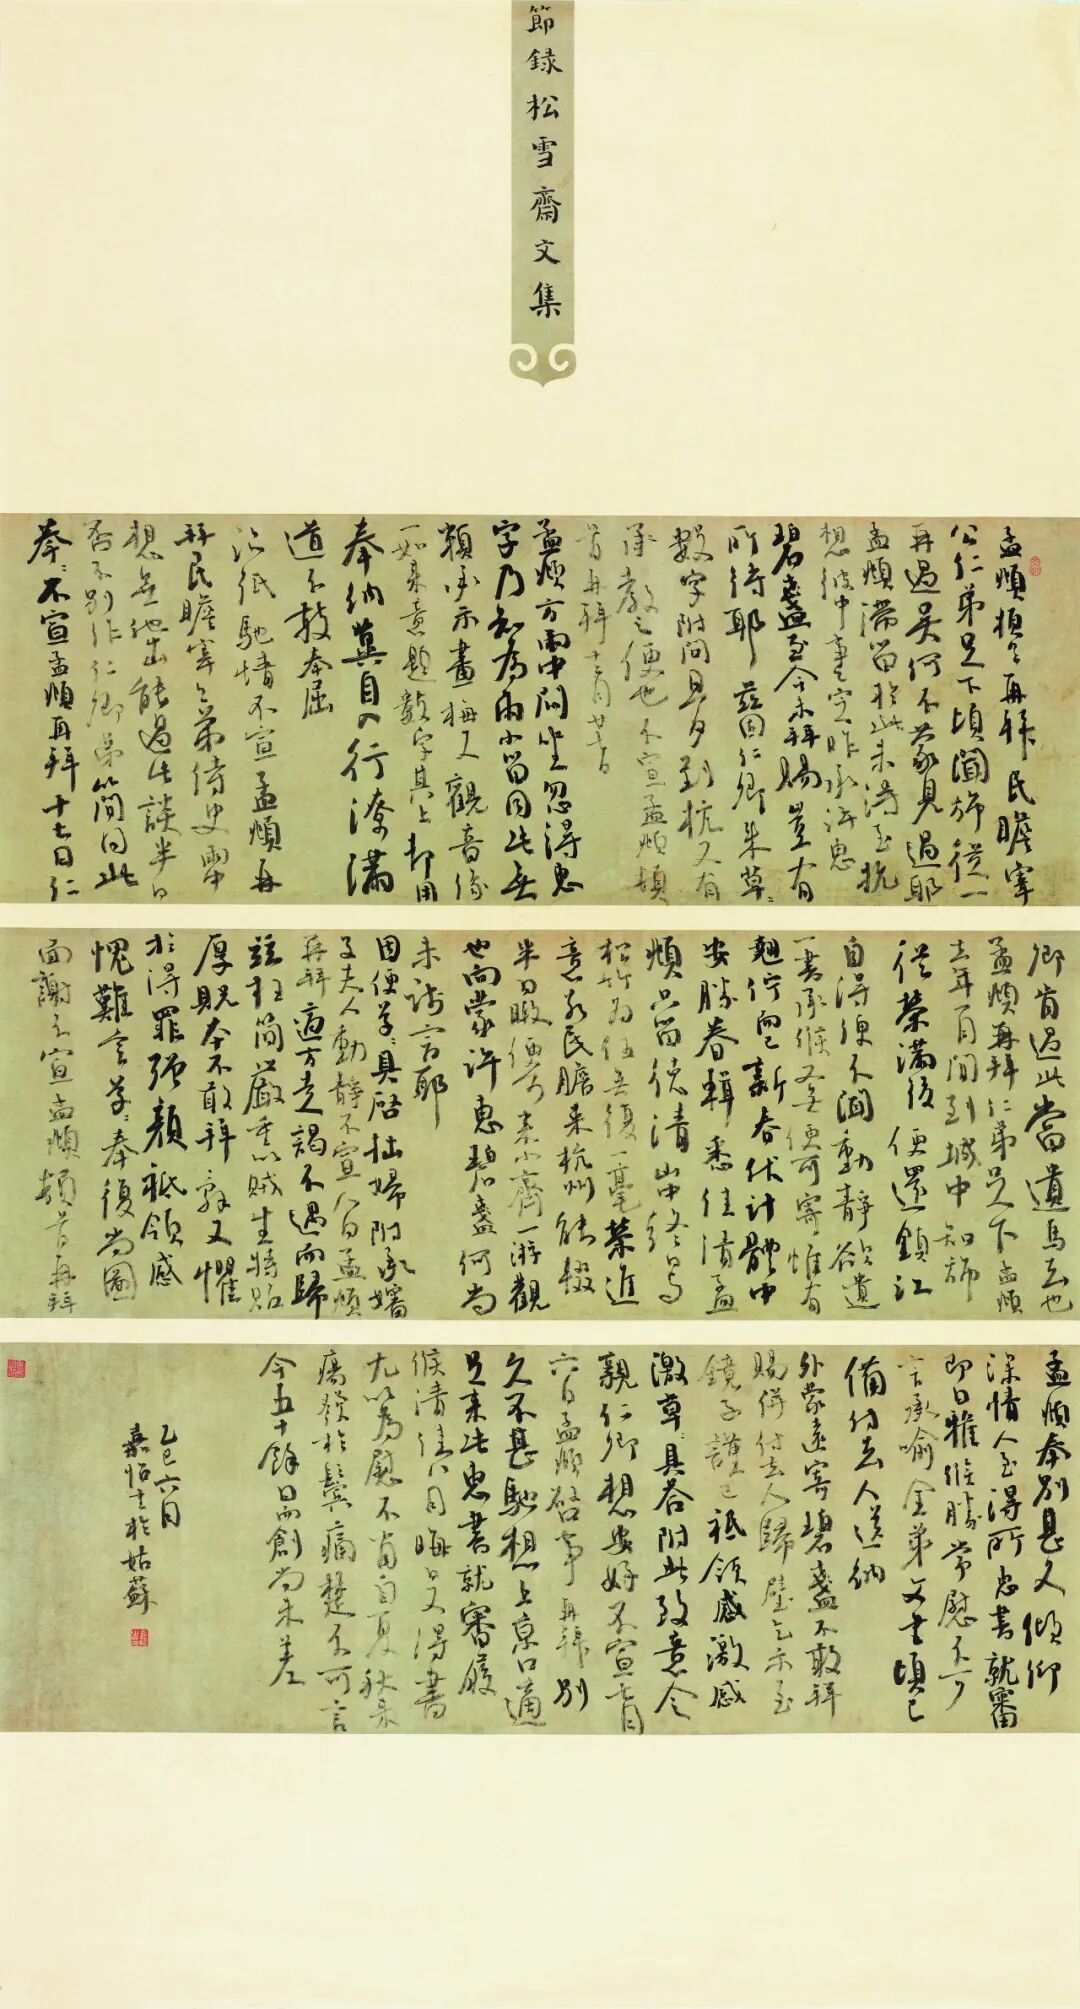 節錄松雪齋文集
孟頫頓首再拜民瞻宰
公仁弟足下頃聞旆從一
再過吳何不蒙見過耶
孟頫滯留於此未得至杭
想彼中事定昨承許惠
碧盞至今未拜賜豈有
所待耶茲因仁卿來草草
數字附問旦夕到杭又有
承教之便也不宣孟頫頓
首再拜十月廿二日
孟頫方雨中悶坐忽得惠
字乃知為雨小留因此無
賴承示畫梅又觀音像
一如來意題數字其上却用
奉納冀目入行潦滿
道不敢奉屈
臨紙馳情不宣孟頫再
拜民瞻宰公弟侍史
想無他出能過此談半日
否不別作仁卿弟簡同此
奉奉不宣孟頫再拜十七日仁
卿肯過此當遣馬去也
孟頫再拜仁弟足下孟頫
去年八月間到城中知旆
從榮滿後便還鎮江
自得便不聞動靜欲遣
一書承候又無便可寄惟有
翹佇而已新春伏計體中
安勝眷輯悉佳清孟
頫只留德清山中終日與
松竹為伍無復一毫榮進
意若民瞻來杭州能輟
半日暇便可來小齋一游觀
也向蒙許惠碧盞何尚
未踐言耶
因便草草具啓拙婦附承嬸
子夫人動靜不宣八日孟頫
再拜適方走謁不遇而歸
茲枉簡嚴重以賊生特貺
厚貺本不敢拜辭又懼
於得罪强顏祗領感
愧難言草草奉復尚圖
面謝不宣孟頫頓首再拜
孟頫奉別甚久傾仰
深情人至得所惠書就審
即日雅候勝常慰不可
言承喻金弟文書頃已
備付去人送納
外蒙遠寄碧盞不敢拜
賜併付去人歸璧乞示至
鏡子謹已祗領感激感
激草草具答附此致意令
親仁卿想安好不宣十二月
六日孟頫啓事再拜別
久不甚馳想上京口適
足來此惠書就審履
候清佳八月晦日又得書
尤以為慰不肖自夏秋來
瘍發於鬢痛楚不可言
今五十餘日而創尚未差
乙巳六月
嘉怡書於姑蘇